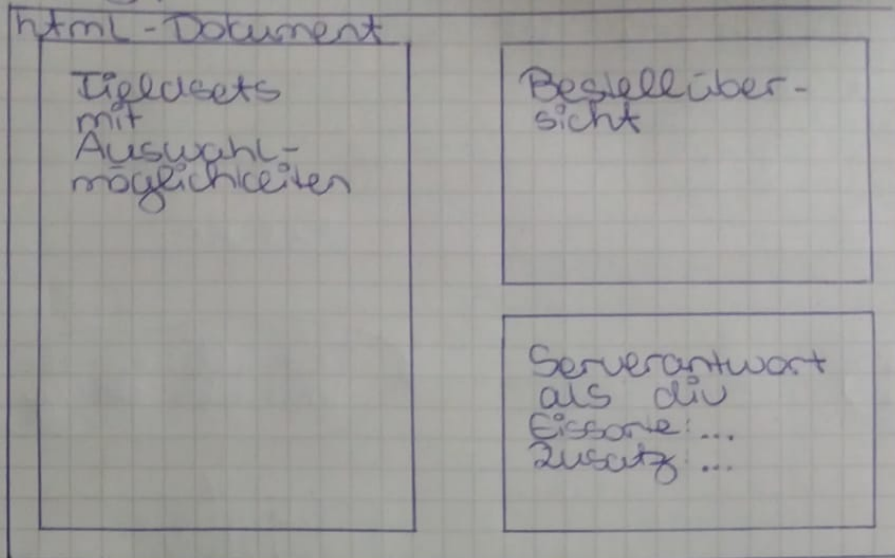 html-Dokument
Fieldsets
mit
Auswahl-
möglichkeiten
Bestellüber-
sicht
Serverantwort
als div
Eissorte: ...
Zusatz: ...